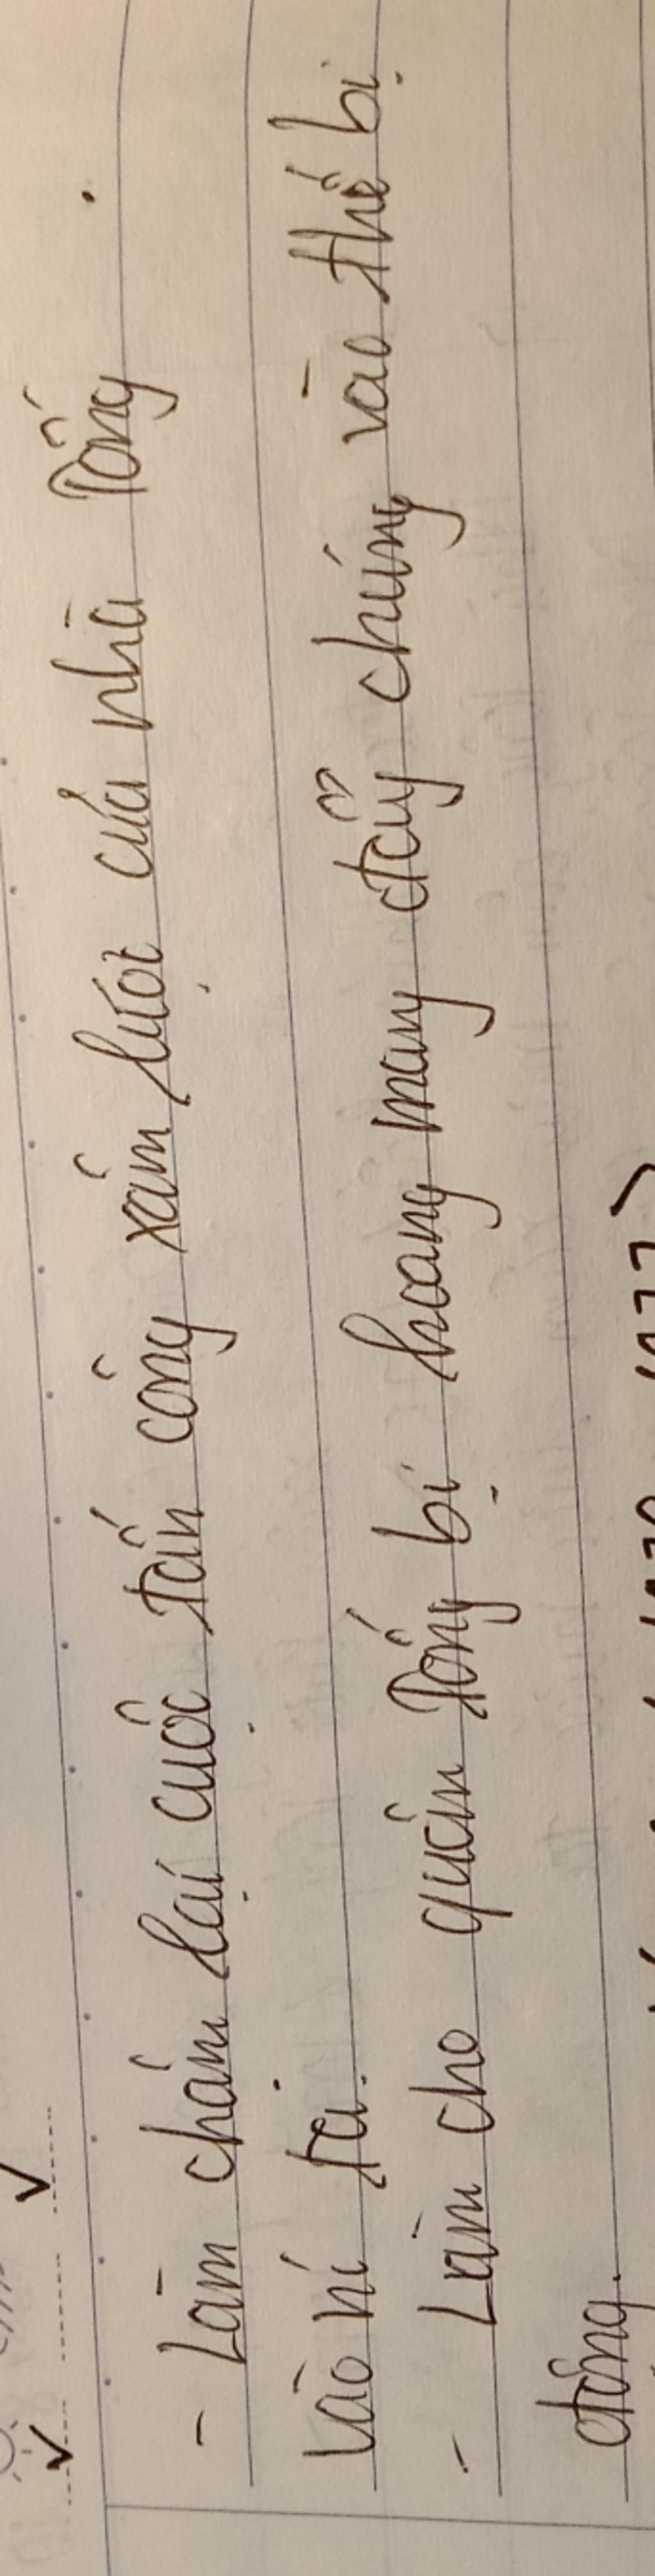 - Làm chậm lại cuộc tấn công xâm lượt của nhà Tống
vào nc ta.
- Làm cho quân Tống bị hoang mang đẩy chúng vào thế bị
động.